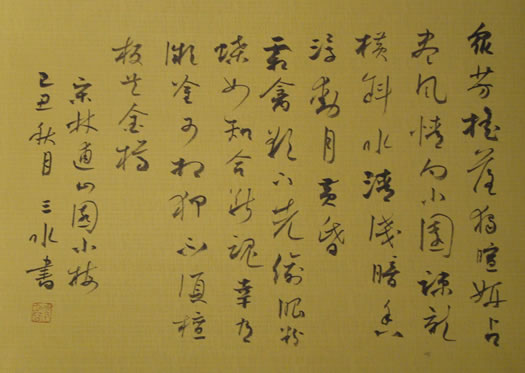 眾芳搖落獨暄妍占
盡風情向小園疎影
橫斜水清淺暗香
浮動月黃昏
霜禽欲下先偷眼粉
蝶如知合斷魂幸有
微吟可相狎不須檀
板共金樽
宋林逋山園小梅
己丑秋月三水書